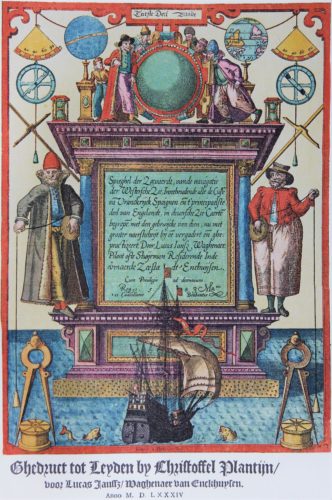 Eerste Deel
Spieghel der Zeevaerdt, vande navigatie
der Westersche Zee, Innehoudende alle de Custen
van Vranckrijck Spaignen en t'principaelste
deel van Engelandt, in diversche Zee Caerten
begrepen, met den
met
grooter naersticheyt by een vergadert en ghe
practizeert Door Lucas Iansz Waghenaer
Piloot ofte Stuyrman Residerende Inde
vermaerde Zeestadt Enchuysen.
Cum Privilegio ad decennium.
Ghedruct tot Leyden by Christoffel Plantijn/
voor Lucas Janssz/ Waghenaer van Enckhuysen.
Anno M. D. LXXXIV